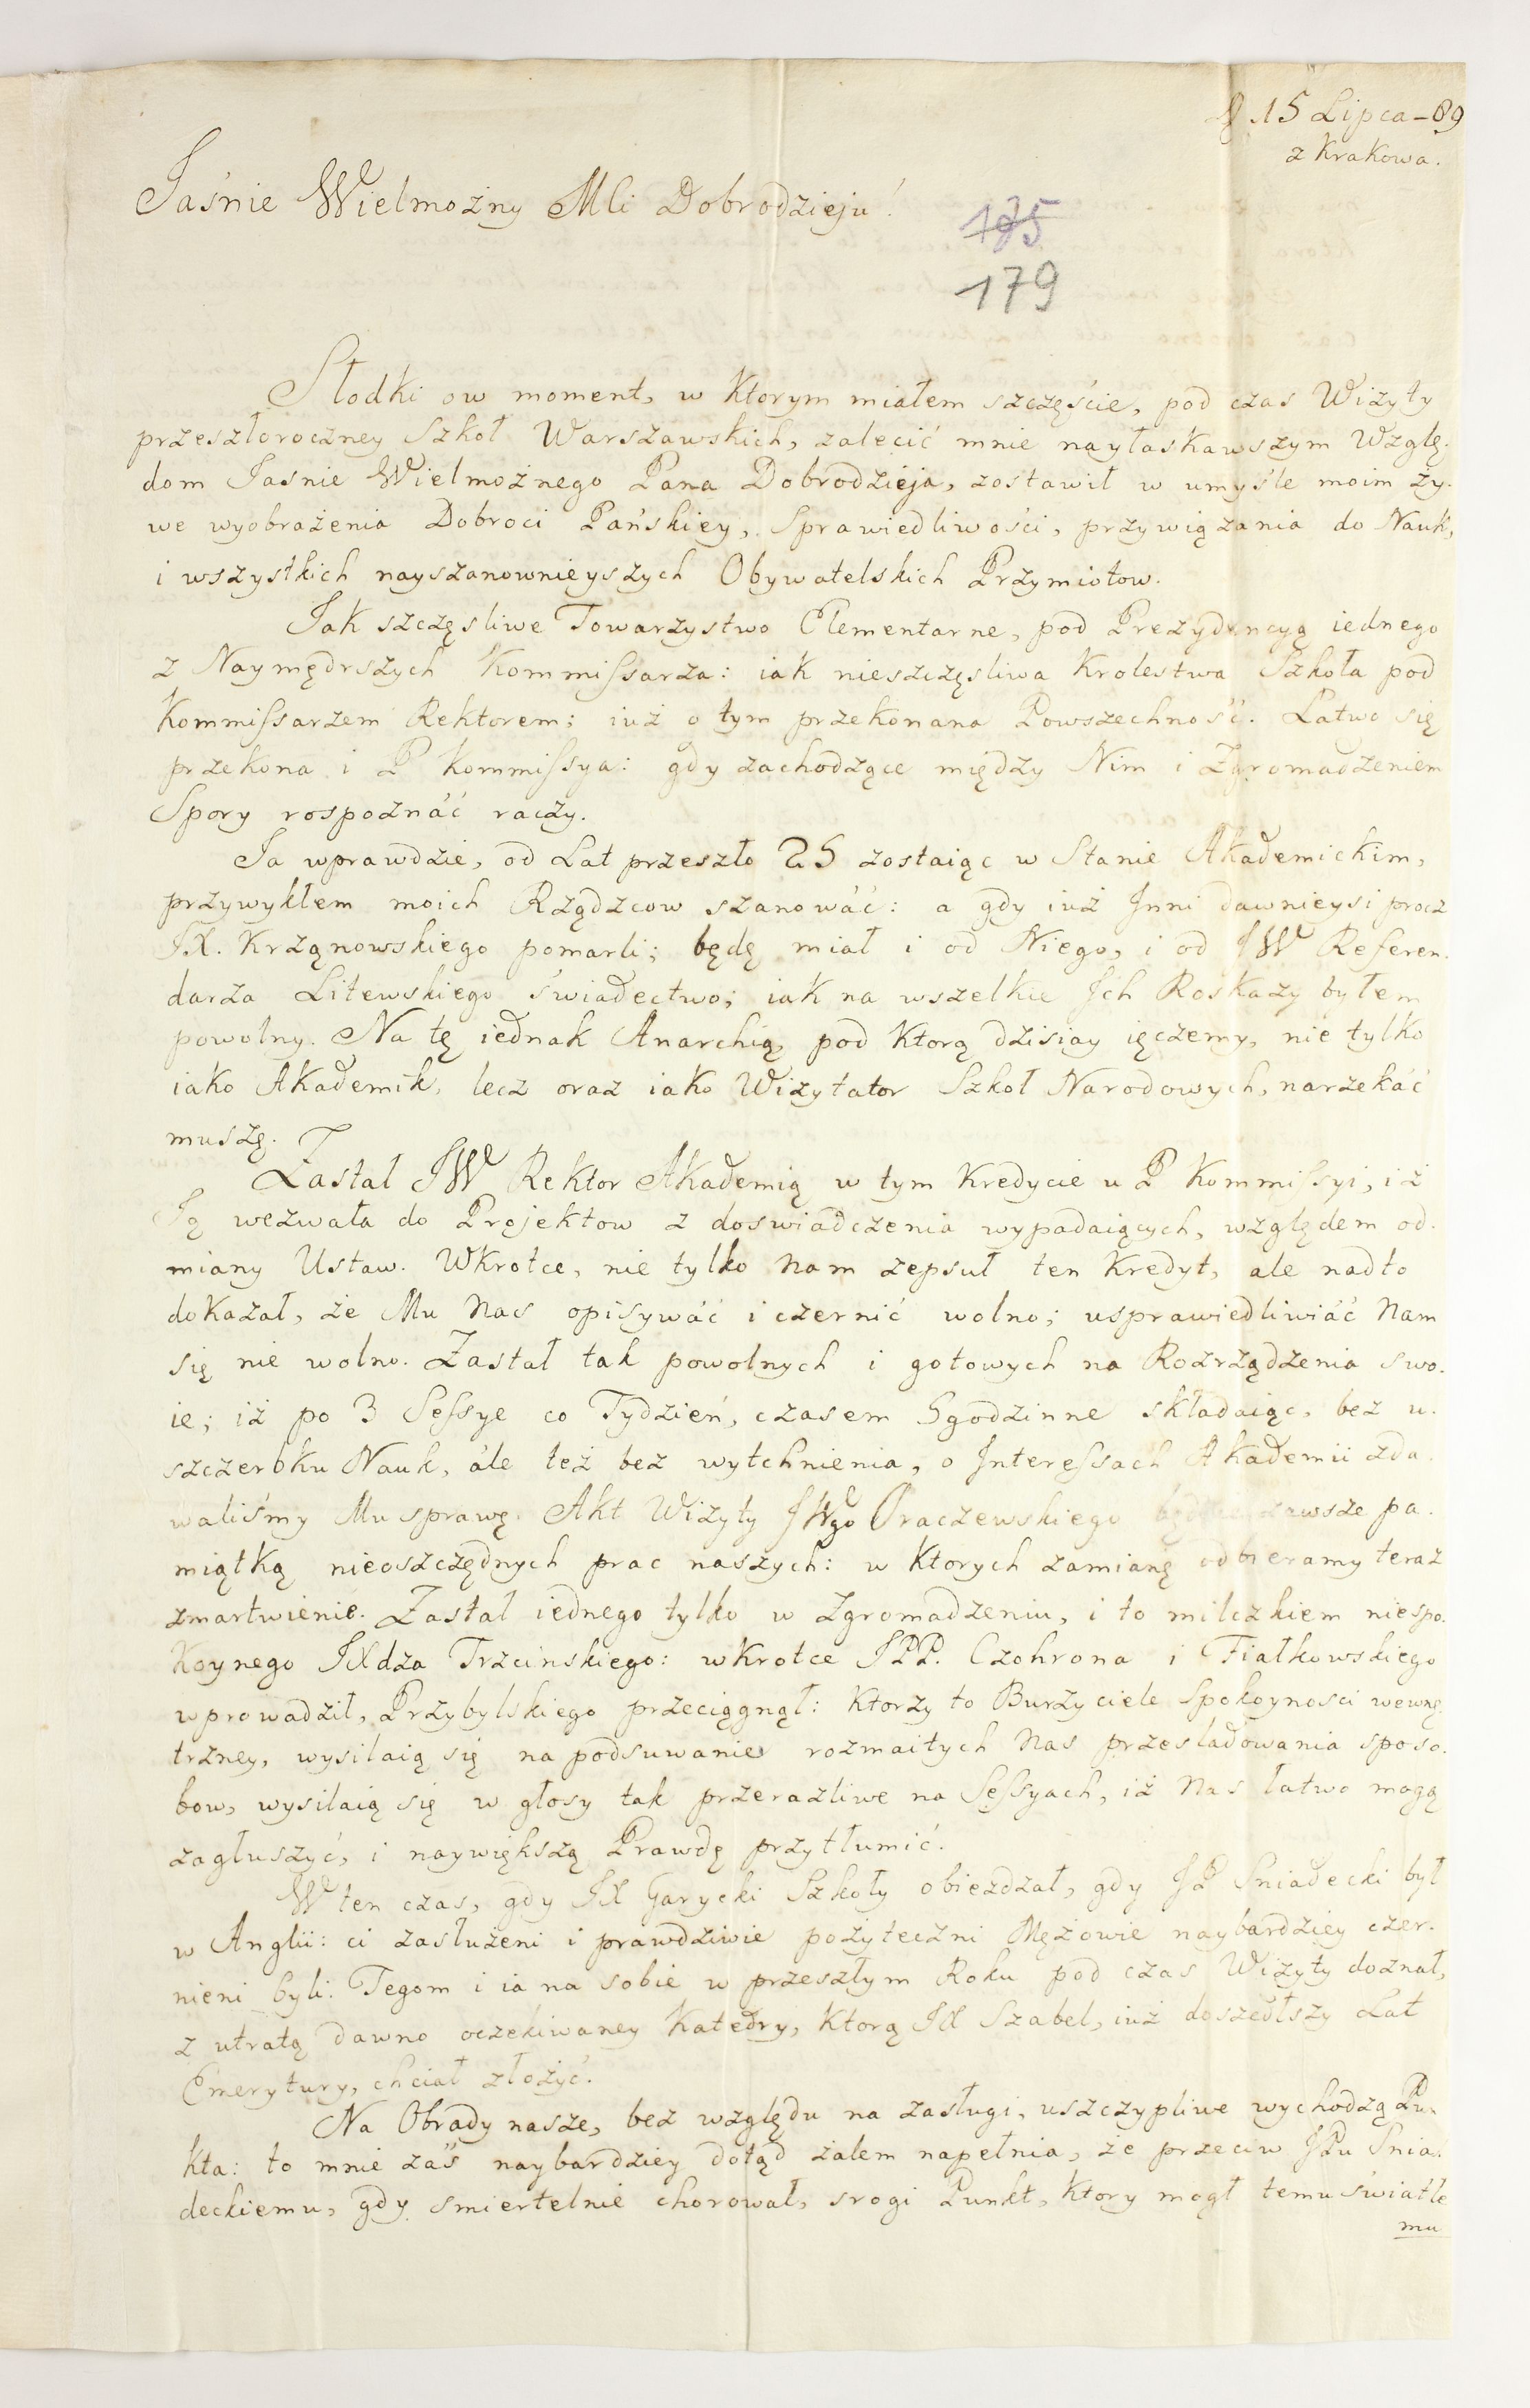 D 15 Lipca - 89
z Krakowa.
Jaśnie Wielmożny Mći Dobrodzieju!
175
179
Słodki ow moment, w Ktorym miałem szczęście, pod czas Wizyty
przeszłoroczney Szkoł Warszawskich, zalecić mnie nayłaskawszym Wzglę-
dom Jasnie Wielmożnego Pana Dobrodzieja, zostawił w umyśle moim ży-
we wyobrażenia Dobroci Pańskiey, Sprawiedliwości, przywiązania do Nauk,
i wszystkich nayszanownieyszych Obywatelskich Przymiotow.
Jak szczęsliwe Towarzystwo Elementarne, pod Prezydencyą iednego
z Naymędrszych Kommissarza: iak nieszczęsliwa Krolestwa Szkoła pod
Kommissarzem Rektorem; iuż o tym przekonana Powszechność. Łatwo się
przekona i P Kommissya: gdy zachodzące między Nim i Zgromadzeniem
Spory rospoznáć raczy.
Ja wprawdzie, od Lat przeszło 25 zostaiąc w Stanie Akademickim,
przywykłem moich Rządzcow szanowáć: a gdy iuż Inni dawnieysi procz
JX. Krząnowskiego pomarli; będę miał i od Niego, i od JW Referen-
darza Litewskiego świadectwo; iak na wszelkie Ich Roskazy byłem
powolny. Na tę iednak Anarchią, pod Ktorą dzisiay ięczemy, nie tylko
iako Akademik, lecz oraz iako Wizytator Szkoł Narodowych, narzekáć
muszę.
Zastał JW Rektor Akademią w tym Kredycie u P Kommissyi, iż
Ją wezwała do Projektow z doswiadczenia wypadaiących, względem od-
miany Ustaw. Wkrotce, nie tylko Nam zepsuł ten Kredyt, ale nadto
dokazał, że Mu Nas opisywáć i czernić wolno; usprawiedliwiáć Nam
się nie wolno. Zastał tak powolnych i gotowych na Rozrządzenia swo-
ie; iż po 3 Sessye co Tydzień, czasem 5godzinne składaiąc, bez u-
szczerbku Nauk, ále też bez wytchnienia, o Interessach Akademii zda-
waliśmy Mu sprawę. Akt Wizyty JWgo Oraczewskiego będzie zawsze pa-
miątką nieoszczędnych prac naszych: w Ktorych zamianę odbieramy teraz
zmartwienie. Zastał iednego tylko w Zgromadzeniu, i to milczkiem niespo-
Koynego JXdza Trzcinskiego: wKrotce JPP. Czohrona i Fiałkowskiego
wprowadził, Przybylskiego przeciągnął: Ktorzy to Burzyciele Spokoynosci wewnę-
trzney, wysilaią się na podsuwanie rozmaitych Nas przesladowania sposo-
bow, wysilaią się w głosy tak przerazliwe na Sessyach, iż Nas łatwo mogą
zagłuszyć, i naywiększą Prawdę przytłumić.
W ten czas, gdy JX Garycki Szkoły obiezdzał, gdy JP Sniadecki był
w Anglii: ci zasłużeni i prawdziwie pożyteczni Mężowie naybardziey czer-
nieni byli. Tegom i ia na sobie w przeszłym Roku pod czas Wizyty doznał,
z utratą dawno oczekiwaney Katedry, Ktorą JX Szabel, iuż doszedłszy Lat
Emerytury, chciał złożyć.
Na Obrady nasze, bez względu na zasługi, uszczypliwe wychodzą Pun-
kta: to mnie zaś naybardziey dotąd żalem napełnia, że przeciw JPu Snia-
deckiemu, gdy smiertelnie chorował, srogi Punkt, Ktory mogł temu światłe
mu